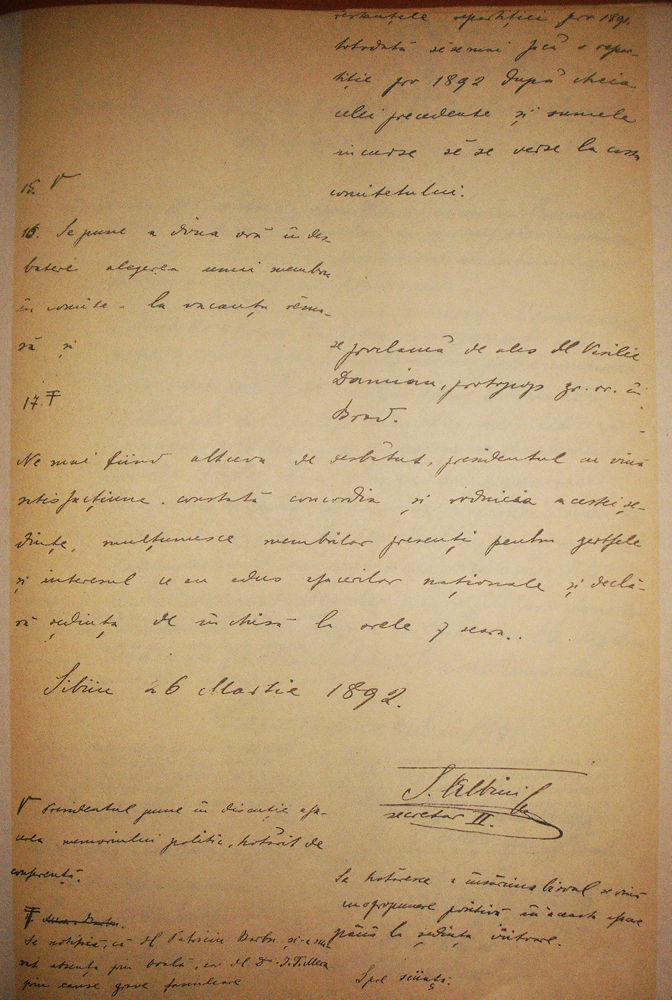 restanțele repartiției pro 1891.
totodată să se mai facă o repar-
tiție pro 1892 după cheia
celei precedente și sumele
incurse să se verse la cassa
comitetului.
15. V
16. Se pune a doua oră în des-
batere alegerea unui membru
în comite- la vacanța rema-
să și
se proclamă de ales dl Vasilie
Damian, protopop gr. or. în
Brad.
17. F
Ne mai fiind altceva de desbătut, presidentul cu viuă
satisfacțiune constată concordia și rodnicia acestei șe-
dințe, mulțumesce membrilor presenți pentru jertfele
și interesul ce au adus afacerilor naționale și declă-
ră ședința de închisă la orele 7 seara.
Sibiiu 26 Martie 1892.
S. Albini
secretar II.
V Presidentul pune în discuție afa-
cerea memoriului politic, hotărît de
conferență.
Se hotăresce a însărcina biroul se vină
cu o propunere positivă în această afacere
până la ședința viitoare.
F
Se notifică, că dl Patriciu Barbu și-a
absența prin boală, er dl Dr. I. T. Mera
prin cause grave familiare
Spre sciință.